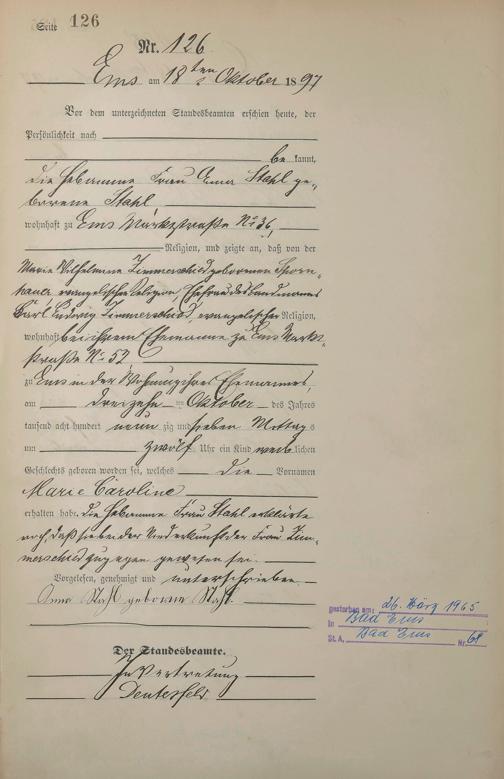 Seite 126
Nr. 126
Ems am 18ten Oktober 1897
Vor dem unterzeichneten Standesbeamten erschien heute, der
Persönlichkeit nach
be kannt,
die Hebamme Frau Anna Stahl ge-
borene Stahl
wohnhaft zu Ems Marktstraße No 36,
Religion, und zeigte an, daß von der
Marie Wilhelmine Zimmerschied geborenen
evangelischer Religion, Ehefrau des Landmannes
Carl Ludwig Zimmerschied, evangelischer Religion,
wohnhaft bei ihrem Ehemanne zu Ems Markt-
straße No 52
zu Ems in der Wohnung ihres Ehemannes,
am dreizehn ten Oktober des Jahres
tausend acht hundert neun zig und sieben Mittags
um zwölf Uhr ein Kind weiblichen
Geschlechts geboren worden sei, welches die Vornamen
Marie Caroline
erhalten habe. Die Hebamme Frau Stahl erklärte
noch, daß sie bei der Niederkunft der Frau Zim-
merschied zugegen gewesen sei.
Vorgelesen, genehmigt und unterschrieben
Anna Stahl geborene Stahl
Der Standesbeamte.
In Vertretung
gestorben am: 26. März 1965
in Bad Ems
St. A. Bad Ems Nr. 68